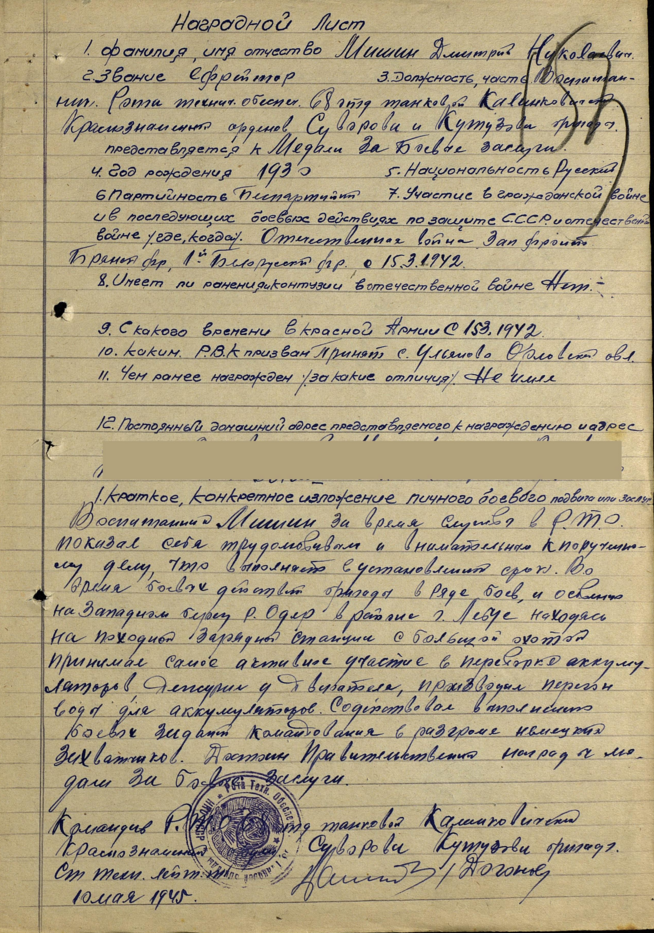 Наградной Лист
1. фамилия, имя отчество Мишин Дмитрий Николаевич.
2. Звание Ефрейтор 3. Должность, часть Воспитан-
ник. Рота технич. обеспеч. 68 гтд танковой Калинковичской
Краснознаменной орденов Суворова и Кутузова бригада.
представляется к Медали За Боевые заслуги.
4. Год рождения 1930 5. Национальность Русский
6 Партийность Беспартийн 7. Участие в гражданской войне
и в последующих боевых действиях по защите СССР и отечествен
войне /где, когда/. Отечественная война Зап фронт
Брянск фр, 1й Белорусск фр, с 15.3.1942.
8. Имеет ли ранения, контузии в отечественной войне Нет. –
9. С какого времени в красной Армии С 15.3.1942.
10. каким. Р.В.К призван Принят с. Ульяново Орловск обл.
11. Чем ранее награжден /за какие отличия/. Не имел
12. Постоянный домашний адрес представляемого к награждению и адрес
1. Краткое, конкретное изложение личного боевого подвига или заслуг
Воспитанник Мишин За время службы в Р.Т.О.
показал себя трудолюбивым и внимательным к порученно-
му делу, что выполняет в установленный срок. Во
время боевых действий бригады в ряде боев, и особенно
на Западном берегу р. Одер в районе г. Лебус находясь
на походной зарядной станции с большой охотой
принимал самое активное участие в перезарядке аккуму-
ляторов Дежурил у Двигателя, производил перегон
воды для аккумуляторов. Содействовал выполнению
боевых заданий командования в разгроме немецких
захватчиков. Достоин Правительственной награды ме-
дали За боевые заслуги.
Командир Р.Т.О. танковой Калинковичской
Краснознаменной Суворова Кутузова бригада.
Ст техн. лейт-т /Догонов
10 мая 1945.